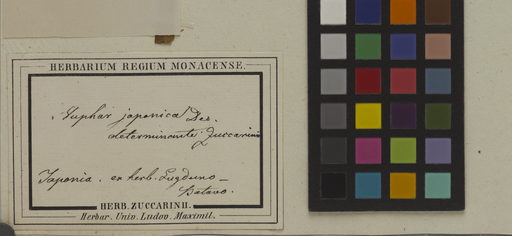 HERBARIUM REGIUM MONACENSE.
Nuphar japonica Dec.
determinante Zuccarini
Japonia. ex herb. Lugduno-
Batavo.
HERB. ZUCCARINII.
Herbar. Univ. Ludov. Maximil.